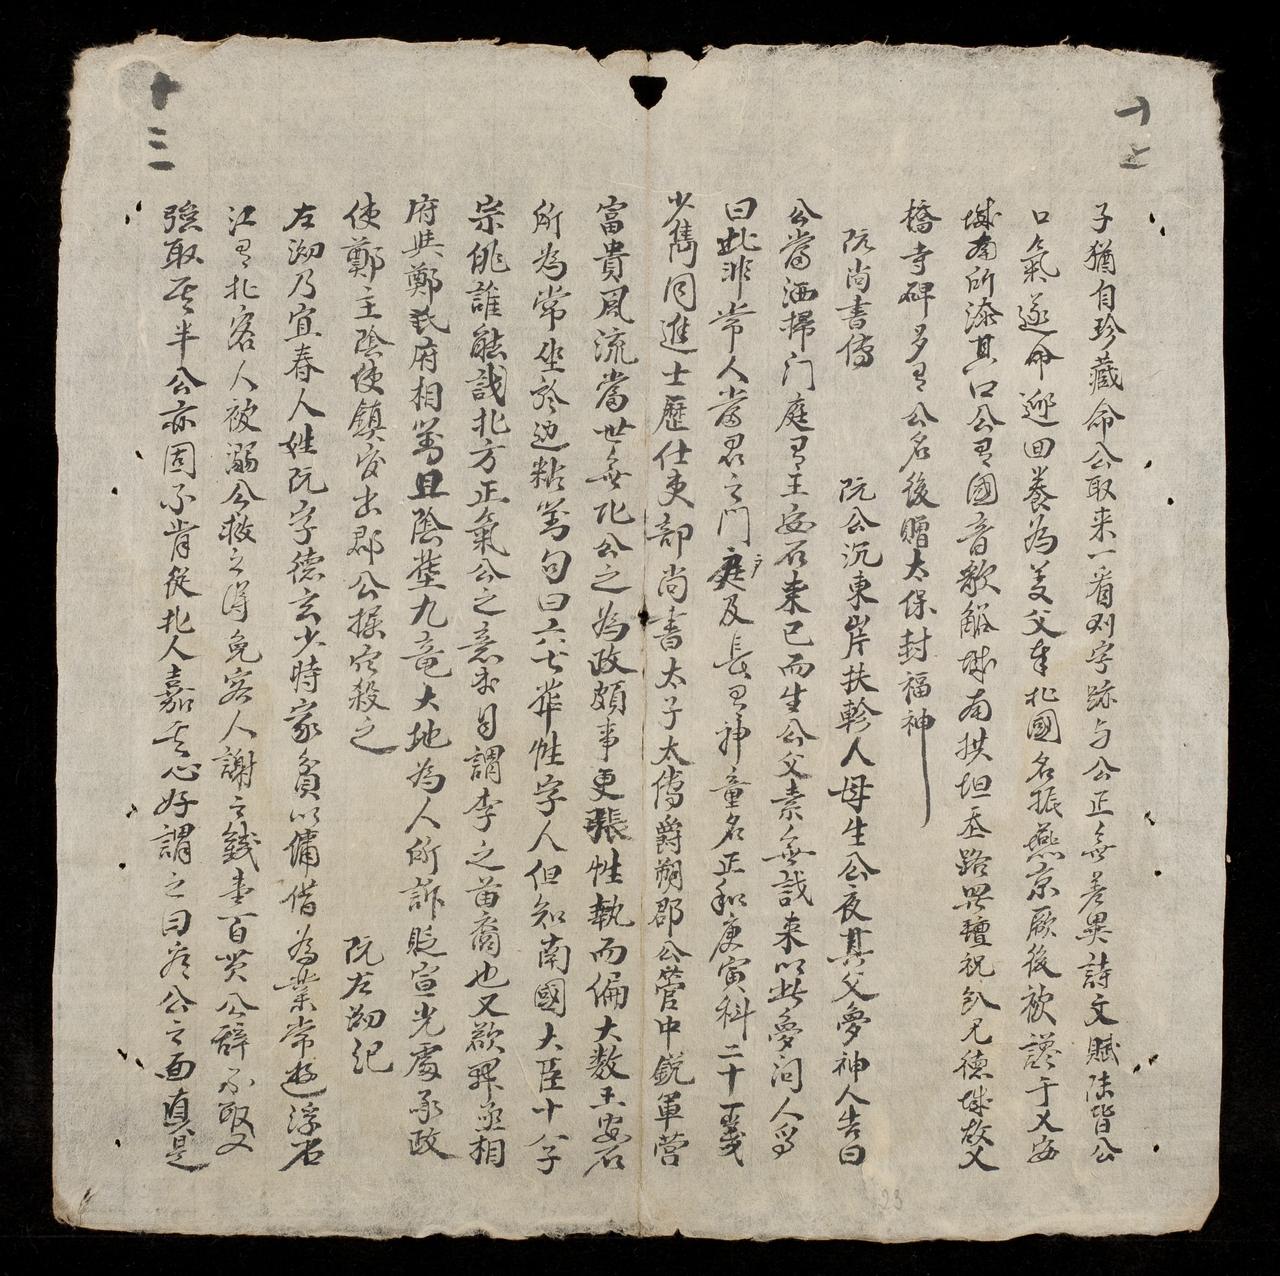 十七
子猶自珍藏命公取来一看列字跡与公正無差異詩文賦陸皆公
口氣遂命迎回養為義父奉北國名振燕京厥後被謫于乂安
城南所漆其口公有國音歌觧城南拱坦丕路畢壇祝釟見德城故父
橋寺碑多有公名後贈太保封福神
阮尚書傳 阮公沉東岸扶軫人母生公夜其父夢神人告曰
公當洒掃门庭有王安石来已而生公父素無識来以此夢问人曰
曰此非常人當君之門戶庭及長有神童名正和庚寅科二十一歲
少雋同進士歷仕吏部尚書太子太傅爵朔郡公管中銳軍营
富貴風流當世無比公之為政頗事更張性執而偏大数王安石
所為常坐於边粘对句曰六七輩性字人但知南國大臣十八子
宗能誰能識北方正氣公之意自謂李之苗裔也又欲
府與鄭氏府相对且陰塟九竜大地為人所訴貶宣光處承政
使鄭主陰使鎮安出郡公掘穴殺之 阮左㘭記
左㘭乃宜春人姓阮字德玄少時家貧以傭借為業常遊浮石
江有北客人被溺公救之得免客人謝之錢壹百貫公辞不取又
強取其半公亦固不肯從北人嘉其心好謂之曰彥公之面真是
十三
23